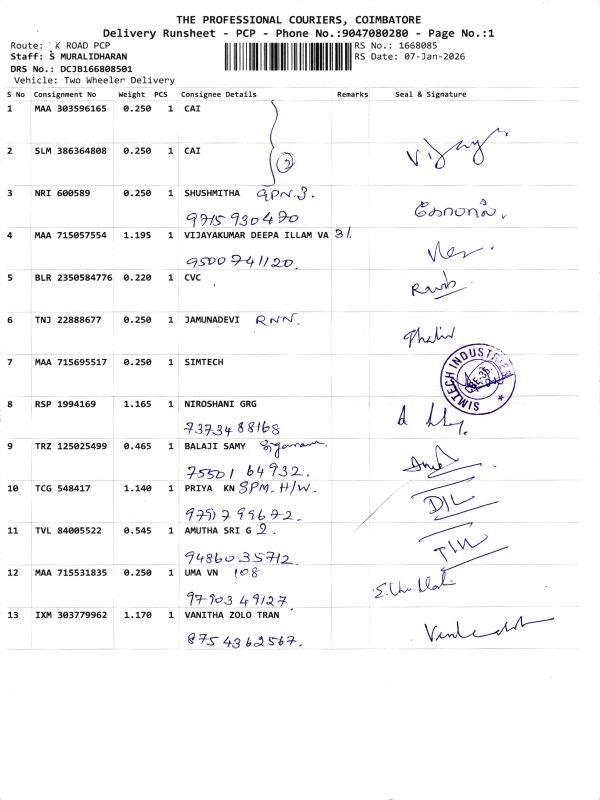 THE PROFESSIONAL COURIERS, COIMBATORE
Delivery Runsheet - PCP - Phone No.:9047080280 - Page No.:1
Route: K ROAD PCP
RS No.: 1668085
Staff: S MURALIDHARAN
RS Date: 07-Jan-2026
DRS No.: DCJB166808501
Vehicle: Two Wheeler Delivery
S No Consignment No Weight PCS Consignee Details Remarks Seal & Signature
1 MAA 303596165 0.250 1 CAI
2 SLM 386364808 0.250 1 CAI
2 Vijay
3 NRI 600589 0.250 1 SHUSHMITHA GPN.3.
9715930470
4 MAA 715057554 1.195 1 VIJAYAKUMAR DEEPA ILLAM VA 31
9500741120.
5 BLR 2350584776 0.220 1 CVC
6 TNJ 22888677 0.250 1 JAMUNADEVI RNN.
7 MAA 715695517 0.250 1 SIMTECH
SIMTECH INDUSTRIES
8 RSP 1994169 1.165 1 NIROSHANI GRG
7373488168
9 TRZ 125025499 0.465 1 BALAJI SAMY
75501 64932.
10 TCG 548417 1.140 1 PRIYA KN SPM. H/W.
9791799672.
11 TVL 84005522 0.545 1 AMUTHA SRI G 2.
9486035712.
12 MAA 715531835 0.250 1 UMA VN 108
9790349127.
13 IXM 303779962 1.170 1 VANITHA ZOLO TRAN
8754362567.